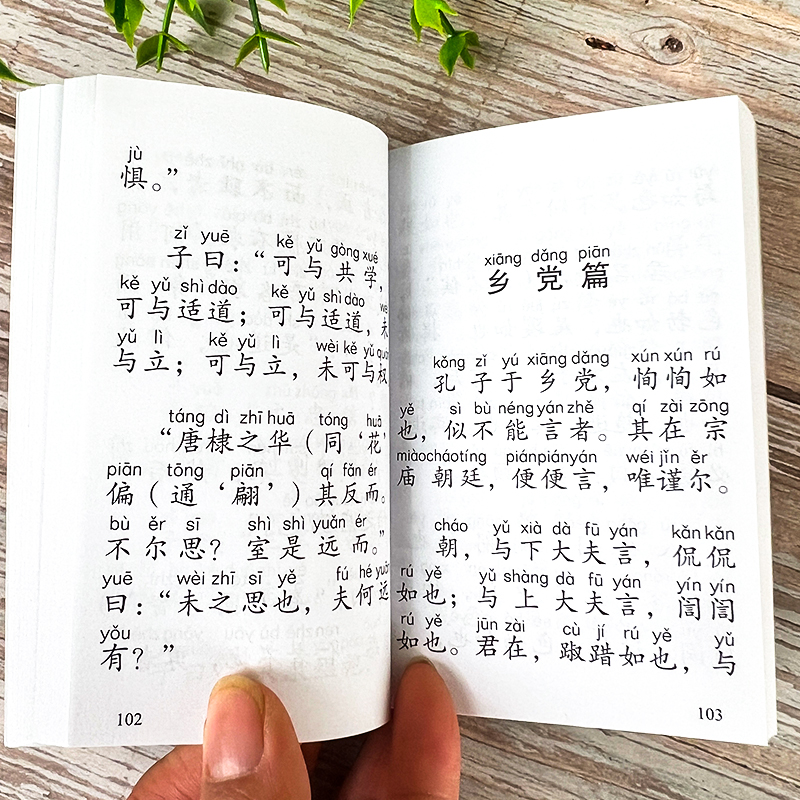 jù
惧。”
zǐ yuē kě yǔ gòng xué
子曰：“可与共学，
kě yǔ shì dào kě yǔ shì dào wèi
可与适道；可与适道，未
yǔ lì kě yǔ lì wèi kě yǔ quán
与立；可与立，未可与权
táng dì zhī huā tóng huā
“唐棣之华（同‘花’
piān tōng piān qí fǎn ér
偏（通‘翩’）其反而。
bù ěr sī shì shì yuǎn ér
不尔思？室是远而。”
yuē wèi zhī sī yě fú hé yuǎn
曰：“未之思也，夫何远
yǒu
有？”
102
xiāng dǎng piān
乡党篇
kǒng zǐ yú xiāng dǎng xún xún rú
孔子于乡党，恂恂如
yě sì bù néng yán zhě qí zài zōng
也，似不能言者。其在宗
miào cháo tíng pián pián yán wéi jǐn ěr
庙朝廷，便便言，唯谨尔。
cháo yǔ xià dà fū yán kǎn kǎn
朝，与下大夫言，侃侃
rú yě yǔ shàng dà fū yán yín yín
如也；与上大夫言，訚訚
rú yě jūn zài cù jí rú yě yǔ
如也。君在，踧踖如也，与
103